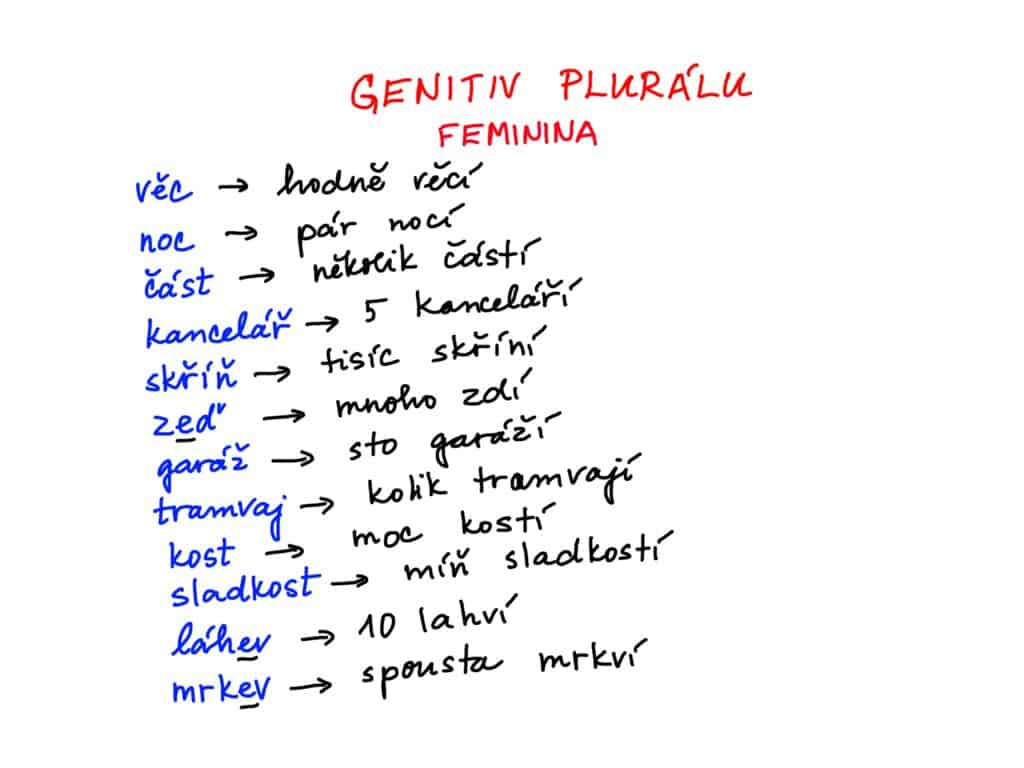 GENITIV PLURÁLU
FEMININA
věc → hodně věcí
noc → pár nocí
část → několik částí
kancelář → 5 kanceláří
skříň → tisíc skříní
zeď → mnoho zdí
garáž → sto garáží
tramvaj → kolik tramvají
kost → moc kostí
sladkost → míň sladkostí
láhev → 10 lahví
mrkev → spousta mrkví